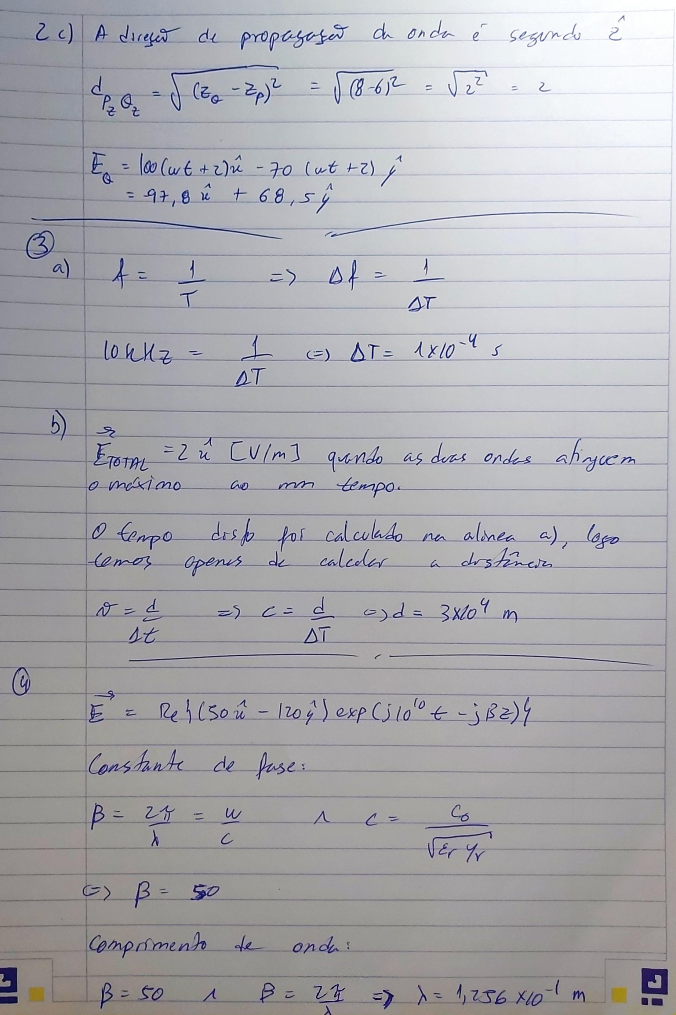 2 c) A direção de propagação da onda é segundo ẑ
d_{P_z Q_z} = √(z_Q - z_P)² = √(8-6)² = √2² = 2
E_Q = 100(wt+2)x̂ - 70 (wt+2) ŷ
= 97,8 x̂ + 68,5 ŷ
3
a) f = 1/T => Δf = 1/ΔT
10 kHz = 1/ΔT (=) ΔT = 1×10⁻⁴ s
b) E⃗_TOTAL = 2 x̂ [V/m] quando as duas ondas atingem
o máximo ao mm tempo.
O tempo disto foi calculado na alínea a), logo
temos apenas de calcular a distância
v = d/Δt => c = d/ΔT (=) d = 3×10⁴ m
4
E⃗ = Re{(50 x̂ - 120 ŷ) exp(j10¹⁰ t - jβz)}
Constante de fase:
β = 2π/λ = w/c ∧ c = c₀/√(εr μr)
(=) β = 50
Comprimento de onda:
β = 50 ∧ β = 2π/λ => λ = 1,256 ×10⁻¹ m